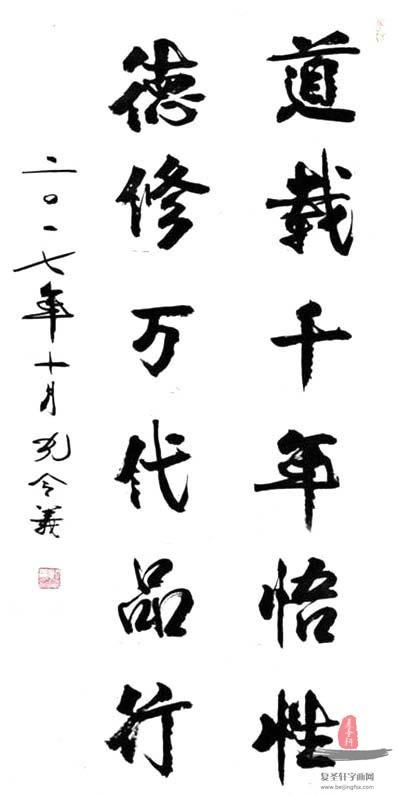 道载千年悟性
德修万代品行
二〇一七年十月孔令義
复圣轩字画网
www.beijingfsx.com